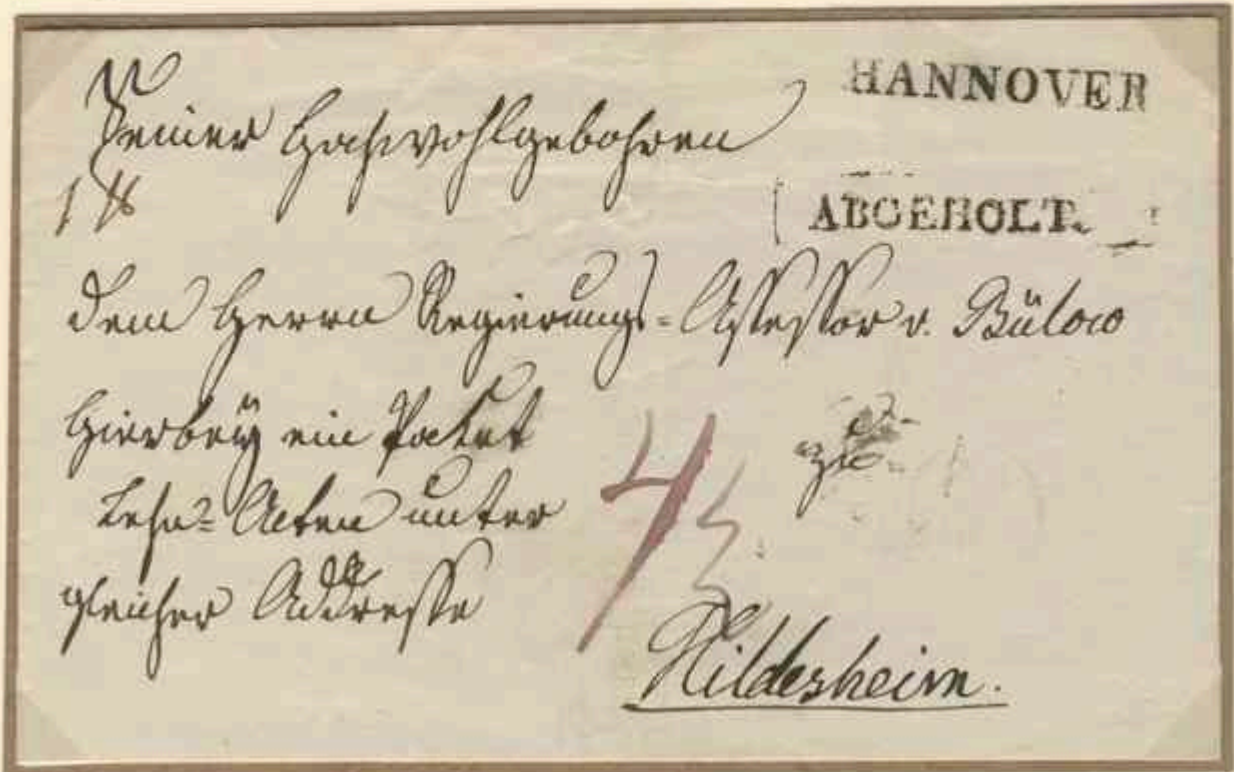 HANNOVER
Seiner Hochwohlgebohren
ABGEHOLT.
dem Herrn Regierungs=Assessor v. Bülow
Hierbeÿ ein Paket
Lehn= Acten unter
gleicher Addresse
4
Hildesheim.